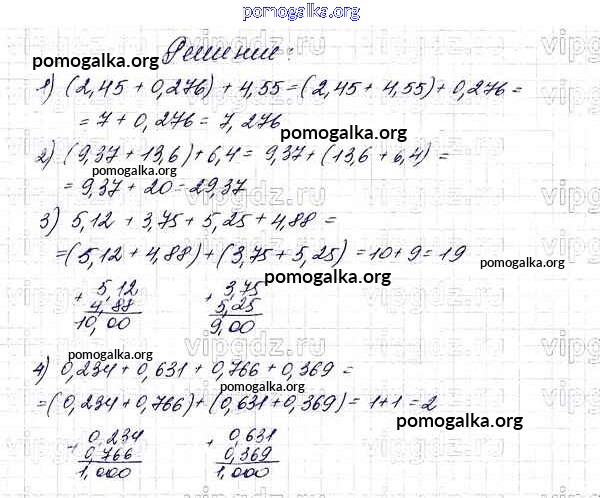 pomogalka.org
Решение:
pomogalka.org
1) (2,45 + 0,276) + 4,55 = (2,45 + 4,55) + 0,276 =
= 7 + 0,276 = 7,276
pomogalka.org
2) (9,37 + 13,6) + 6,4 = 9,37 + (13,6 + 6,4) =
pomogalka.org
= 9,37 + 20 = 29,37
3) 5,12 + 3,75 + 5,25 + 4,88 =
= (5,12 + 4,88) + (3,75 + 5,25) = 10 + 9 = 19
pomogalka.org
pomogalka.org
+ 5,12 + 3,75
4,88 5,25
10,00 9,00
pomogalka.org
4) 0,234 + 0,631 + 0,766 + 0,369 =
pomogalka.org
= (0,234 + 0,766) + (0,631 + 0,369) = 1 + 1 = 2
pomogalka.org
+ 0,234 + 0,631
0,766 0,369
1,000 1,000